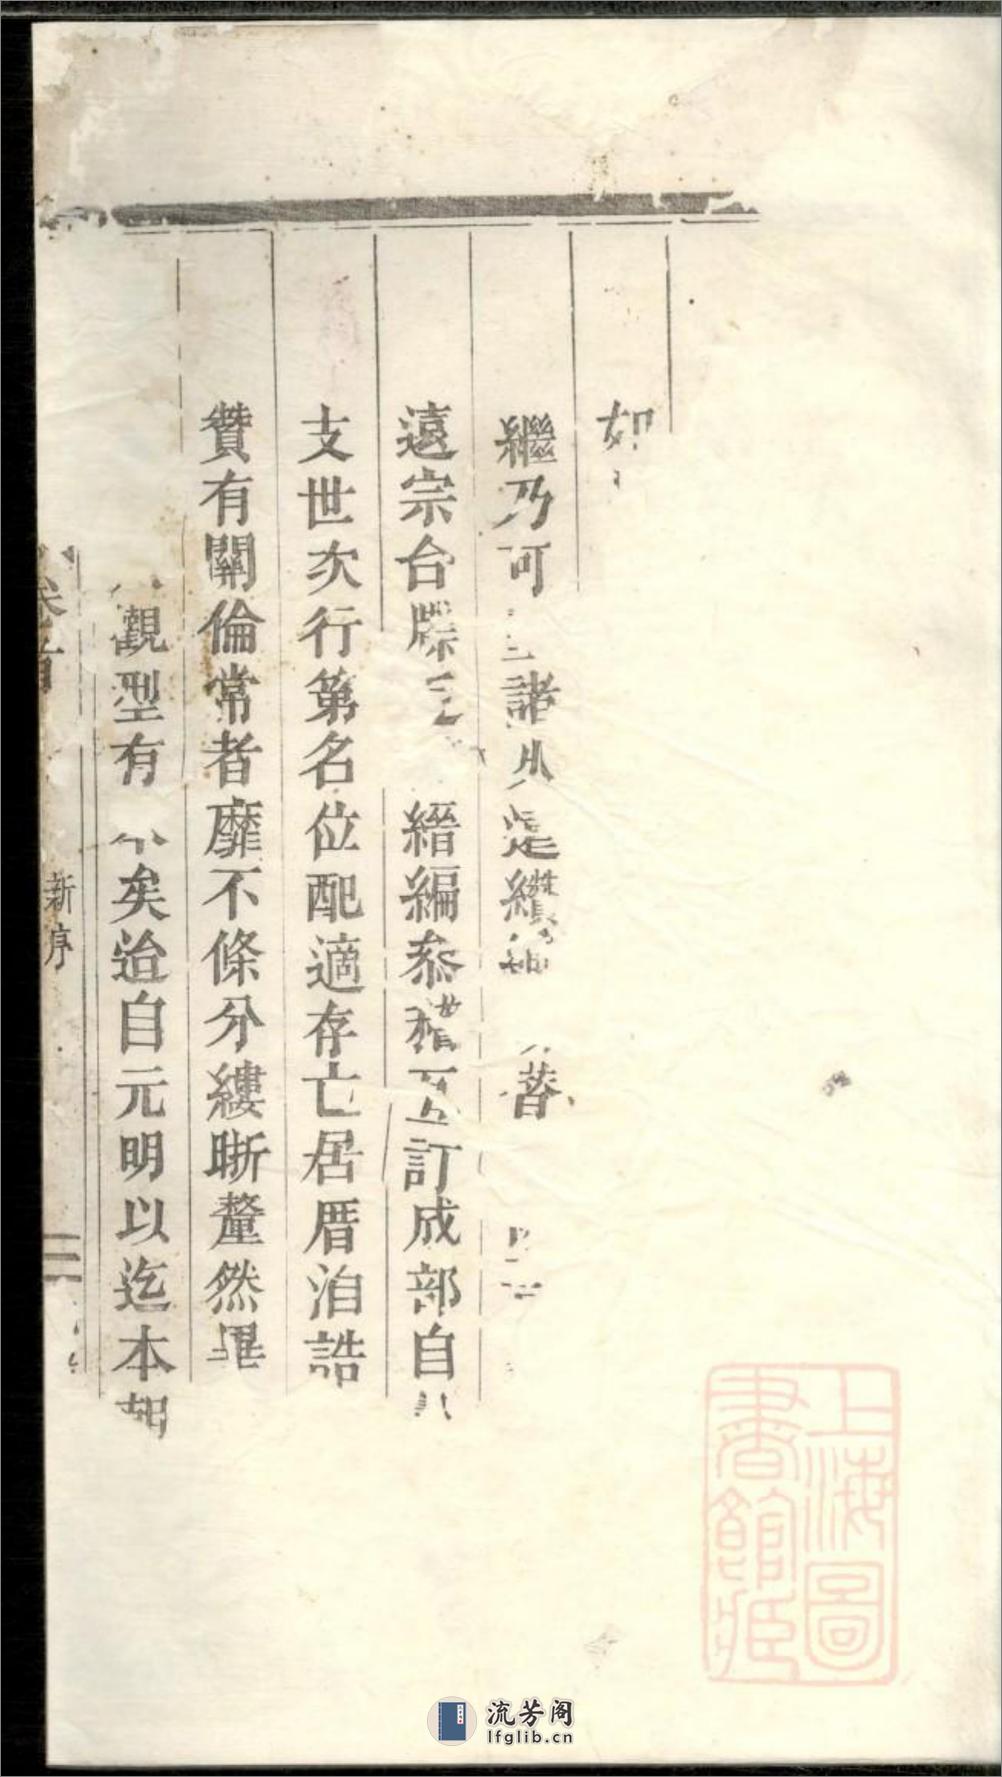 如
繼乃可諸是纘替
遠宗台牒縉編叅稽互訂成部自
支世次行第名位配適存亡居厝洎誥
贊有關倫常者靡不條分縷晣釐然畢
觀型有矣迨自元明以迄本朝
卷首 新序 二
上海圖書館藏
流芳阁
lfglib.cn